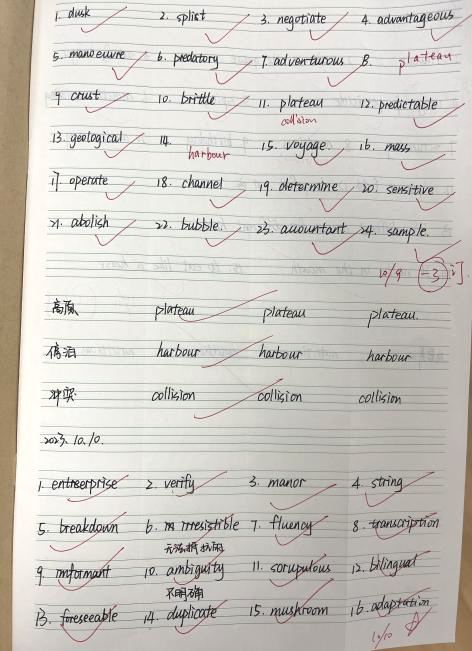 1. dusk 2. splist 3. negotiate 4. advantageous
5. manoeuvre 6. predatory 7. adventurous 8. plateau
9. crust 10. brittle 11. plateau 12. predictable
collision
13. geological 14. harbour 15. voyage 16. mass
17. operate 18. channel 19. determine 20. sensitive
21. abolish 22. bubble. 23. auountant 24. sample.
10/9 -3 订.
高原 plateau plateau plateau.
停泊 harbour harbour harbour
冲突 collision collision collision
2023. 10. 10.
1. entreerprise 2. verify 3. manor 4. string
5. breakdown 6. irresistible 7. fluency 8. transcription
无法抵抗的
9. imformant 10. ambiguity 11. sorupulous 12. bilingual
不明确
13. foreseeable 14. duplicate 15. mushroom 16. adaptation
10/10